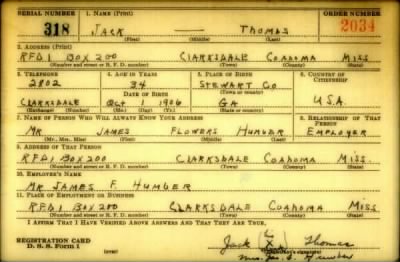 SERIAL NUMBER 1. NAME (Print) ORDER NUMBER
318 JACK — THOMAS 2034
(First) (Middle) (Last)
2. ADDRESS (Print)
RFD 1 BOX 200 CLARKSDALE COAHOMA MISS
(Number and street or R. F. D. number) (Town) (County) (State)
3. TELEPHONE 4. AGE IN YEARS 5. PLACE OF BIRTH 6. COUNTRY OF CITIZENSHIP
2802 34 STEWART CO
DATE OF BIRTH (Town or county)
CLARKSDALE OCT 1 1906 GA U.S.A.
(Exchange) (Number) (Mo.) (Day) (Yr.) (State or country)
7. NAME OF PERSON WHO WILL ALWAYS KNOW YOUR ADDRESS 8. RELATIONSHIP OF THAT PERSON
MR JAMES FLOWERS HUMBER EMPLOYER
(Mr., Mrs., Miss) (First) (Middle) (Last)
9. ADDRESS OF THAT PERSON
RFD 1 BOX 200 CLARKSDALE COAHOMA MISS.
(Number and street or R. F. D. number) (Town) (County) (State)
10. EMPLOYER'S NAME
MR JAMES F. HUMBER
11. PLACE OF EMPLOYMENT OR BUSINESS
RFD 1 BOX 200 CLARKSDALE COAHOMA MISS.
(Number and street or R. F. D. number) (Town) (County) (State)
I AFFIRM THAT I HAVE VERIFIED ABOVE ANSWERS AND THAT THEY ARE TRUE.
REGISTRATION CARD
D. S. S. Form 1
Jack X Thomas
Mrs. Humber